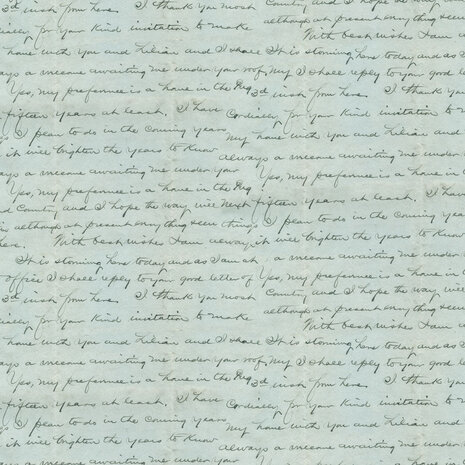 3d inst from here. I thank you most Country and I hope the way will
cordially for your kind invitation to make although at present every thing seem
With best wishes I am
home with you and Lilian and I shall It is storming here today and as I
always a welcome awaiting me under your roof, my I shall reply to your good letter
Yes, my preference is a home in the 3d inst from here. I thank you
fifteen years at least. I have Cordially for your kind invitation to
as I plan to do in the coming years my home with you and Lilian and
it will brighten the years to know always a welcome awaiting me under
Yes, my preference is a home in the Yes, my preference is a home in the
and Country and I hope the way will next fifteen years at least. I have
although at present every thing seem things I plan to do in the coming years
here. With best wishes I am always it will brighten the years to know
It is storming here today and as I am at a welcome awaiting me under
office I shall reply to your good letter of Yes, my preference is a home in
3d inst from here. I thank you most Country and I hope the way will
Cordially for your kind invitation to make although at present every thing seem
With best wishes I am
home with you and Lilian and I shall It is storming here today and as I
always a welcome awaiting me under your roof, my I shall reply to your good letter
Yes, my preference is a home in the 3d inst from here. I thank you
fifteen years at least. I have Cordially for your kind invitation to
as I plan to do in the coming years my home with you and Lilian and
it will brighten the years to know always a welcome awaiting me under